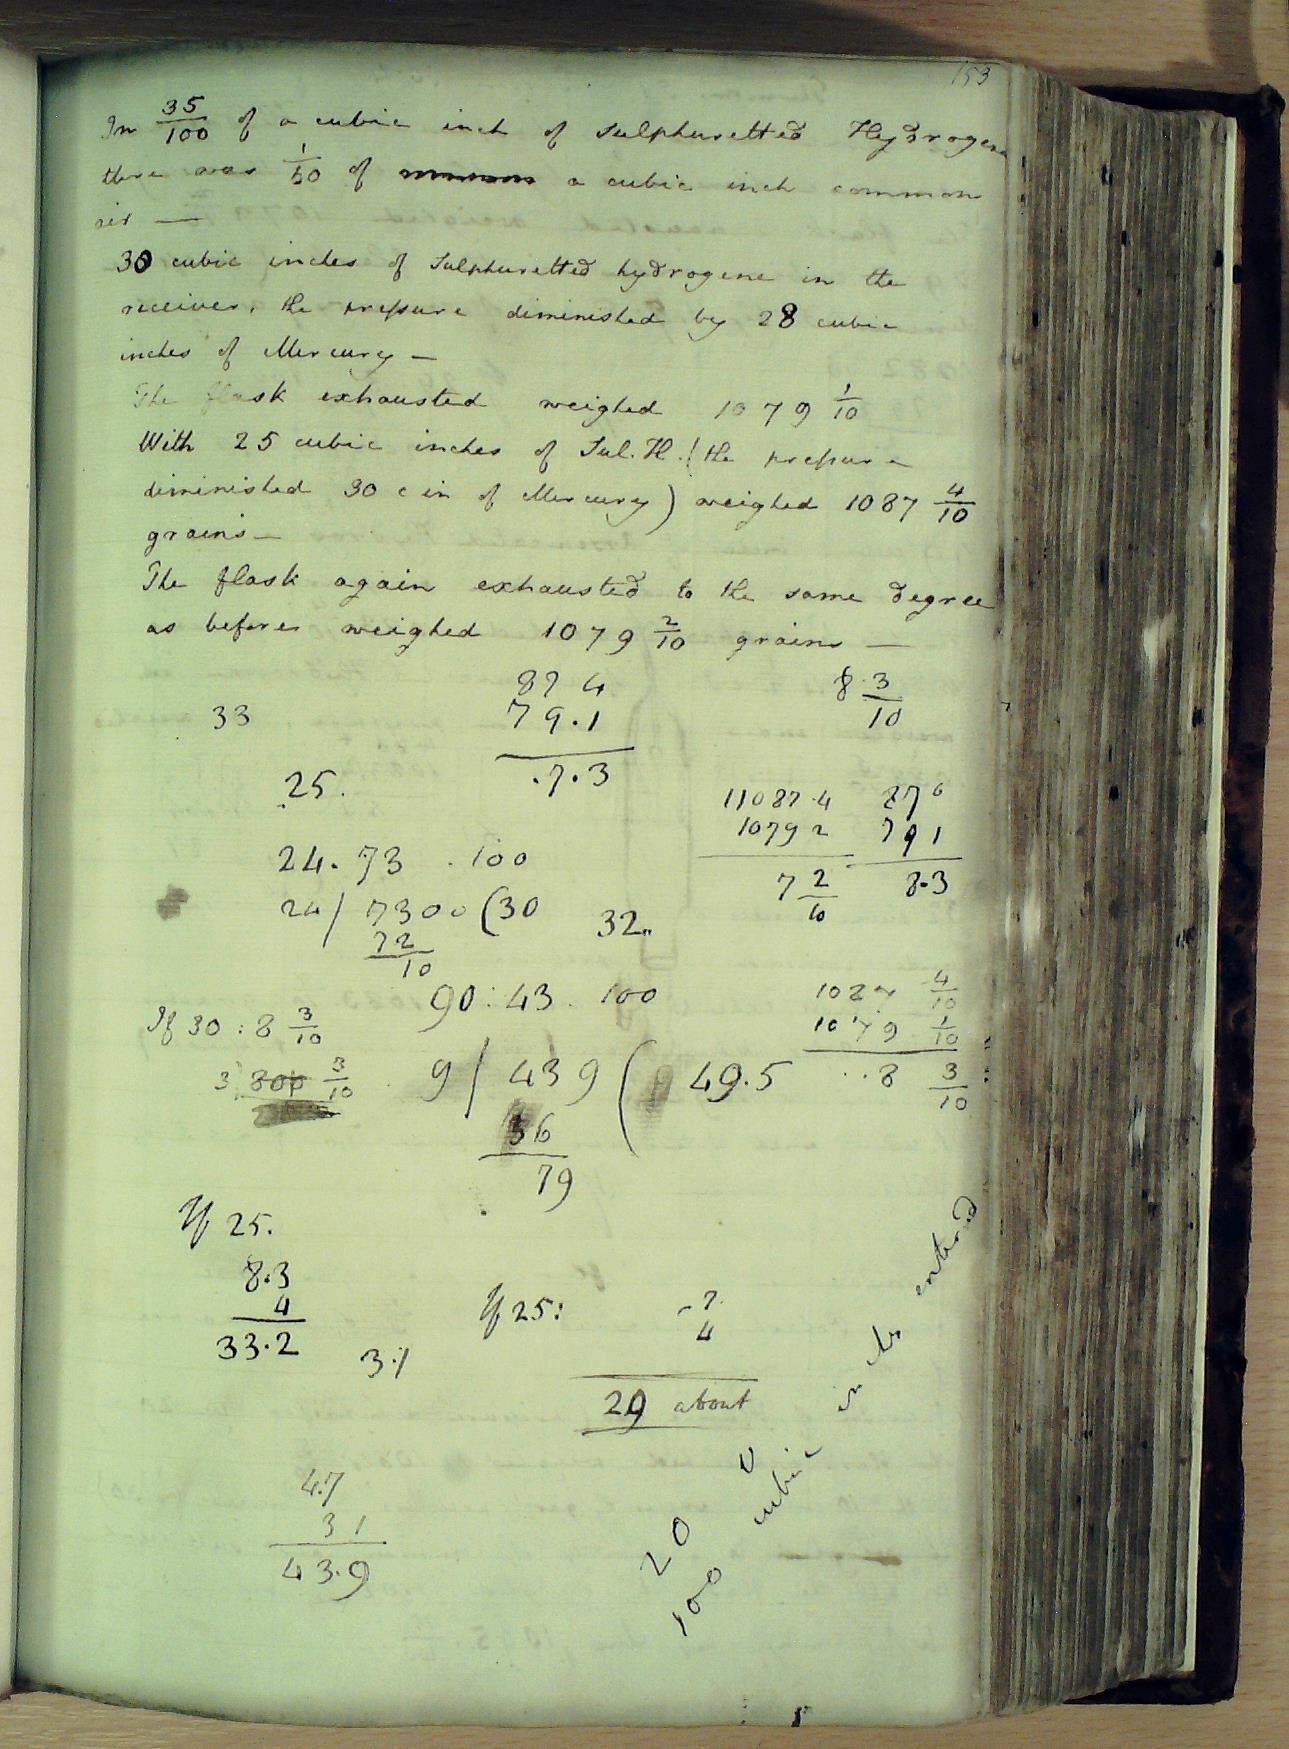 153
In 35/100 of a cubic inch of sulphuretted Hydrogene
there was 1/50 of a cubic inch common
air —
30 cubic inches of Sulphuretted hydrogene in the
receiver, the pressure diminished by 28 cubic
inches of Mercury —
The flask exhausted weighed 1079 1/10
With 25 cubic inches of Sul. H. (the pressure
diminished 30 c in of Mercury) weighed 1087 4/10
grains —
The flask again exhausted to the same degree
as before weighed 1079 2/10 grains —
87 4 8 3/10
33 79.1
.7.3
25.
11087.4
1079 2 791
7 2/10 8.3
24. 73 . 100
24/ 7300 (30 32
72
10
90 : 43 . 100
If 30 : 8 3/10
1087 4/10
1079 1/10
8 3/10
3 3/10
9 / 439 ( 49.5
36
79
If 25.
8.3
4
33.2
3.1
If 25: 7
4
29 about
47
3 1
43.9
20
100 cubic in entered